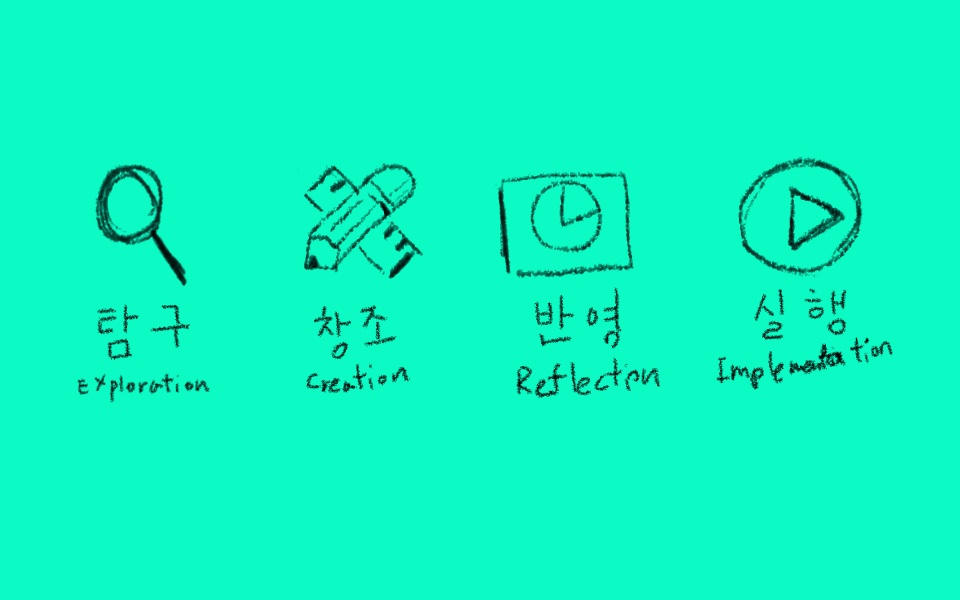 탐구
Exploration
창조
Creation
반영
Reflection
실행
Implementation